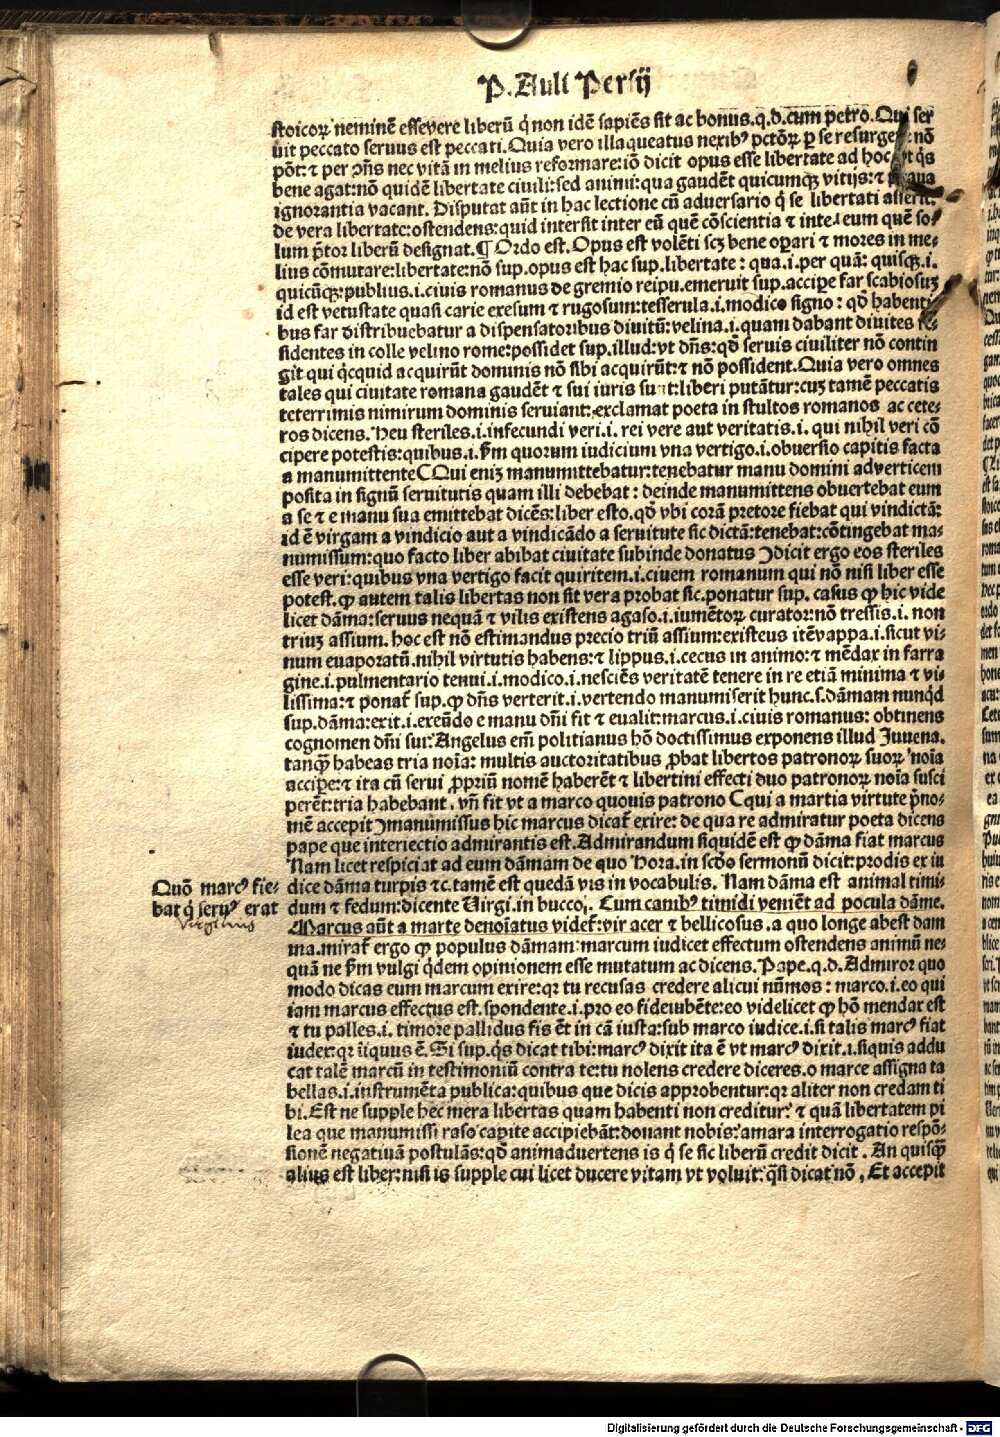 P. Auli Persij
stoicoꝝ neminē esse vere liberū q̇ non idē sapiēs sit ac bonus. q. d. cum petro. Qui ser
uit peccato seruus est peccati. Quia vero illaqueatus nexibꝰ pctōꝝ ꝑ se resurgere nō
pōt: ⁊ per ↄn̄s nec vitā in melius reformare: iō dicit opus esse libertate ad hoc vt q̇s
bene agat: nō quidē libertate ciuili: sed animi: qua gaudēt quicumqꝫ vitijs: ⁊ praua
ignorantia vacant. Disputat aūt in hac lectione cū aduersario q̇ se libertati asserit.
de vera libertate: ostendens: quid intersit inter eū quē cōscientia ⁊ inter eum quē so/
lum p̄tor liberū designat. ¶ Ordo est. Opus est volēti scꝫ bene oꝑari ⁊ mores in me/
lius cōmutare: libertate: nō sup. opus est hac sup. libertate: qua. i. per quā: quisqꝫ. i.
quicūqꝫ: publius. i. ciuis romanus de gremio reipu. emeruit sup. acciꝑe far scabiosuꝫ
id est vetustate quasi carie exesum ⁊ rugosum: tesserula. i. modico signo: qd̄ habenti/
bus far distribuebatur a dispensatoribus diuitū: velina. i. quam dabant diuites re/
sidentes in colle velino rome: possidet sup. illud: vt dn̄s: qd̄ seruis ciuiliter nō contin
git qui q̇cquid acquirūt dominis nō sibi acquirūt: ⁊ nō possident. Quia vero omnes
tales qui ciuitate romana gaudēt ⁊ sui iuris sunt: liberi putātur: cuꝫ tamē peccatis
teterrimis nimirum dominis seruiant: exclamat poeta in stultos romanos ac cete/
ros dicens. Heu steriles. i. infecundi veri. i. rei vere aut veritatis. i. qui nihil veri cō
cipere potestis: quibus. i. ẜm quorum iudicium vna vertigo. i. obuersio capitis facta
a manumittente (Qui eniꝫ manumittebatur: tenebatur manu domini ad verticem
posita in signū seruitutis quam illi debebat: deinde manumittens obuertebat eum
a se ⁊ e manu sua emittebat dicēs: liber esto. qd̄ vbi corā pretore fiebat qui vindictā:
id ē virgam a vindicio aut a vindicādo a seruitute sic dictā: tenebat: cōtingebat ma/
numissum: quo facto liber abibat ciuitate subinde donatus) dicit ergo eos steriles
esse veri: quibus vna vertigo facit quiritem. i. ciuem romanum qui nō nisi liber esse
potest. ꝙ autem talis libertas non sit vera probat sic. ponatur sup. casus ꝙ hic vide
licet dāma: seruus nequā ⁊ vilis existens agaso. i. iumētoꝝ curator: nō tressis. i. non
triuꝫ assium. hoc est nō estimandus precio triū assium: existeus itē vappa. i. sicut vi/
num euaporatū. nihil virtutis habens: ⁊ lippus. i. cecus in animo: ⁊ mēdax in farra
gine. i. pulmentario tenui. i. modico. i. nesciēs veritatē tenere in re etiā minima ⁊ vi/
lissima: ⁊ ponat̄ sup. ꝙ dn̄s verterit. i. vertendo manumiserit hunc. s. dāmam nunq̇d
sup. dāma: exit. i. exeūdo e manu dn̄i fit ⁊ eualit: marcus. i. ciuis romanus: obtinens
cognomen dn̄i sui: Angelus em̄ politianus hō doctissimus exponens illud Juuena.
tanqꝫ̄ habeas tria noīa: multis auctoritatibus ꝓbat libertos patronoꝝ suoꝝ noīa
accipe: ⁊ ita cū serui ꝓpriū nomē haberēt ⁊ libertini effecti duo patronoꝝ noīa susci
perēt: tria habebant. vn̄ fit vt a marco quouis patrono (qui a martia virtute p̄no/
mē accepit) manumissus hic marcus dicat̄ exire: de qua re admiratur poeta dicens
pape que interiectio admirantis est. Admirandum siquidē est ꝙ dāma fiat marcus
Nam licet respiciat ad eum dāmam de quo Hora. in scd̄o sermonū dicit: prodis ex iu
Quō marcꝰ fie/
bat q̇ seruꝰ erat
virgilius
dice dāma turpis ⁊c. tamē est quedā vis in vocabulis. Nam dāma est animal timi/
dum ⁊ fedum: dicente Virgi. in bucco. Cum canibꝰ timidi veniēt ad pocula dāme.
Marcus aūt a marte denoīatus videt̄: vir acer ⁊ bellicosus. a quo longe abest dam
ma. mirat̄ ergo ꝙ populus dāmam: marcum iudicet effectum ostendens animū ne/
quā ne ẜm vulgi q̇dem opinionem esse mutatum ac dicens. Pape. q. d. Admiror quo
modo dicas eum marcum exire: qꝛ tu recusas credere alicui nūmos: marco. i. eo qui
iam marcus effectus est. spondente. i. pro eo fideiubēte: eo videlicet ꝙ hō mendax est
⁊ tu palles. i. timore pallidus fis ēt in cā iusta: sub marco iudice. i. si talis marcꝰ fiat
iudex: qꝛ iīquus ē. Si sup. q̇s dicat tibi: marcꝰ dixit ita ē vt marcꝰ dixit. i. siquis addu
cat talē marcū in testimoniū contra te: tu nolens credere diceres. o marce assigna ta
bellas. i. instrumēta publica: quibus que dicis approbentur: qꝛ aliter non credam ti
bi. Est ne supple hec mera libertas quam habenti non creditur: ⁊ quā libertatem pi
lea que manumissi raso capite accipiebāt: donant nobis: amara interrogatio respō/
sionē negatiuā postulās: qd̄ animaduertens is q̇ se sic liberū credit dicit. An quisqꝫ̄
alius est liber: nisi is supple cui licet ducere vitam vt voluit: q̇si dicat nō. Et accepit
Digitalisierung gefördert durch die Deutsche Forschungsgemeinschaft - DFG